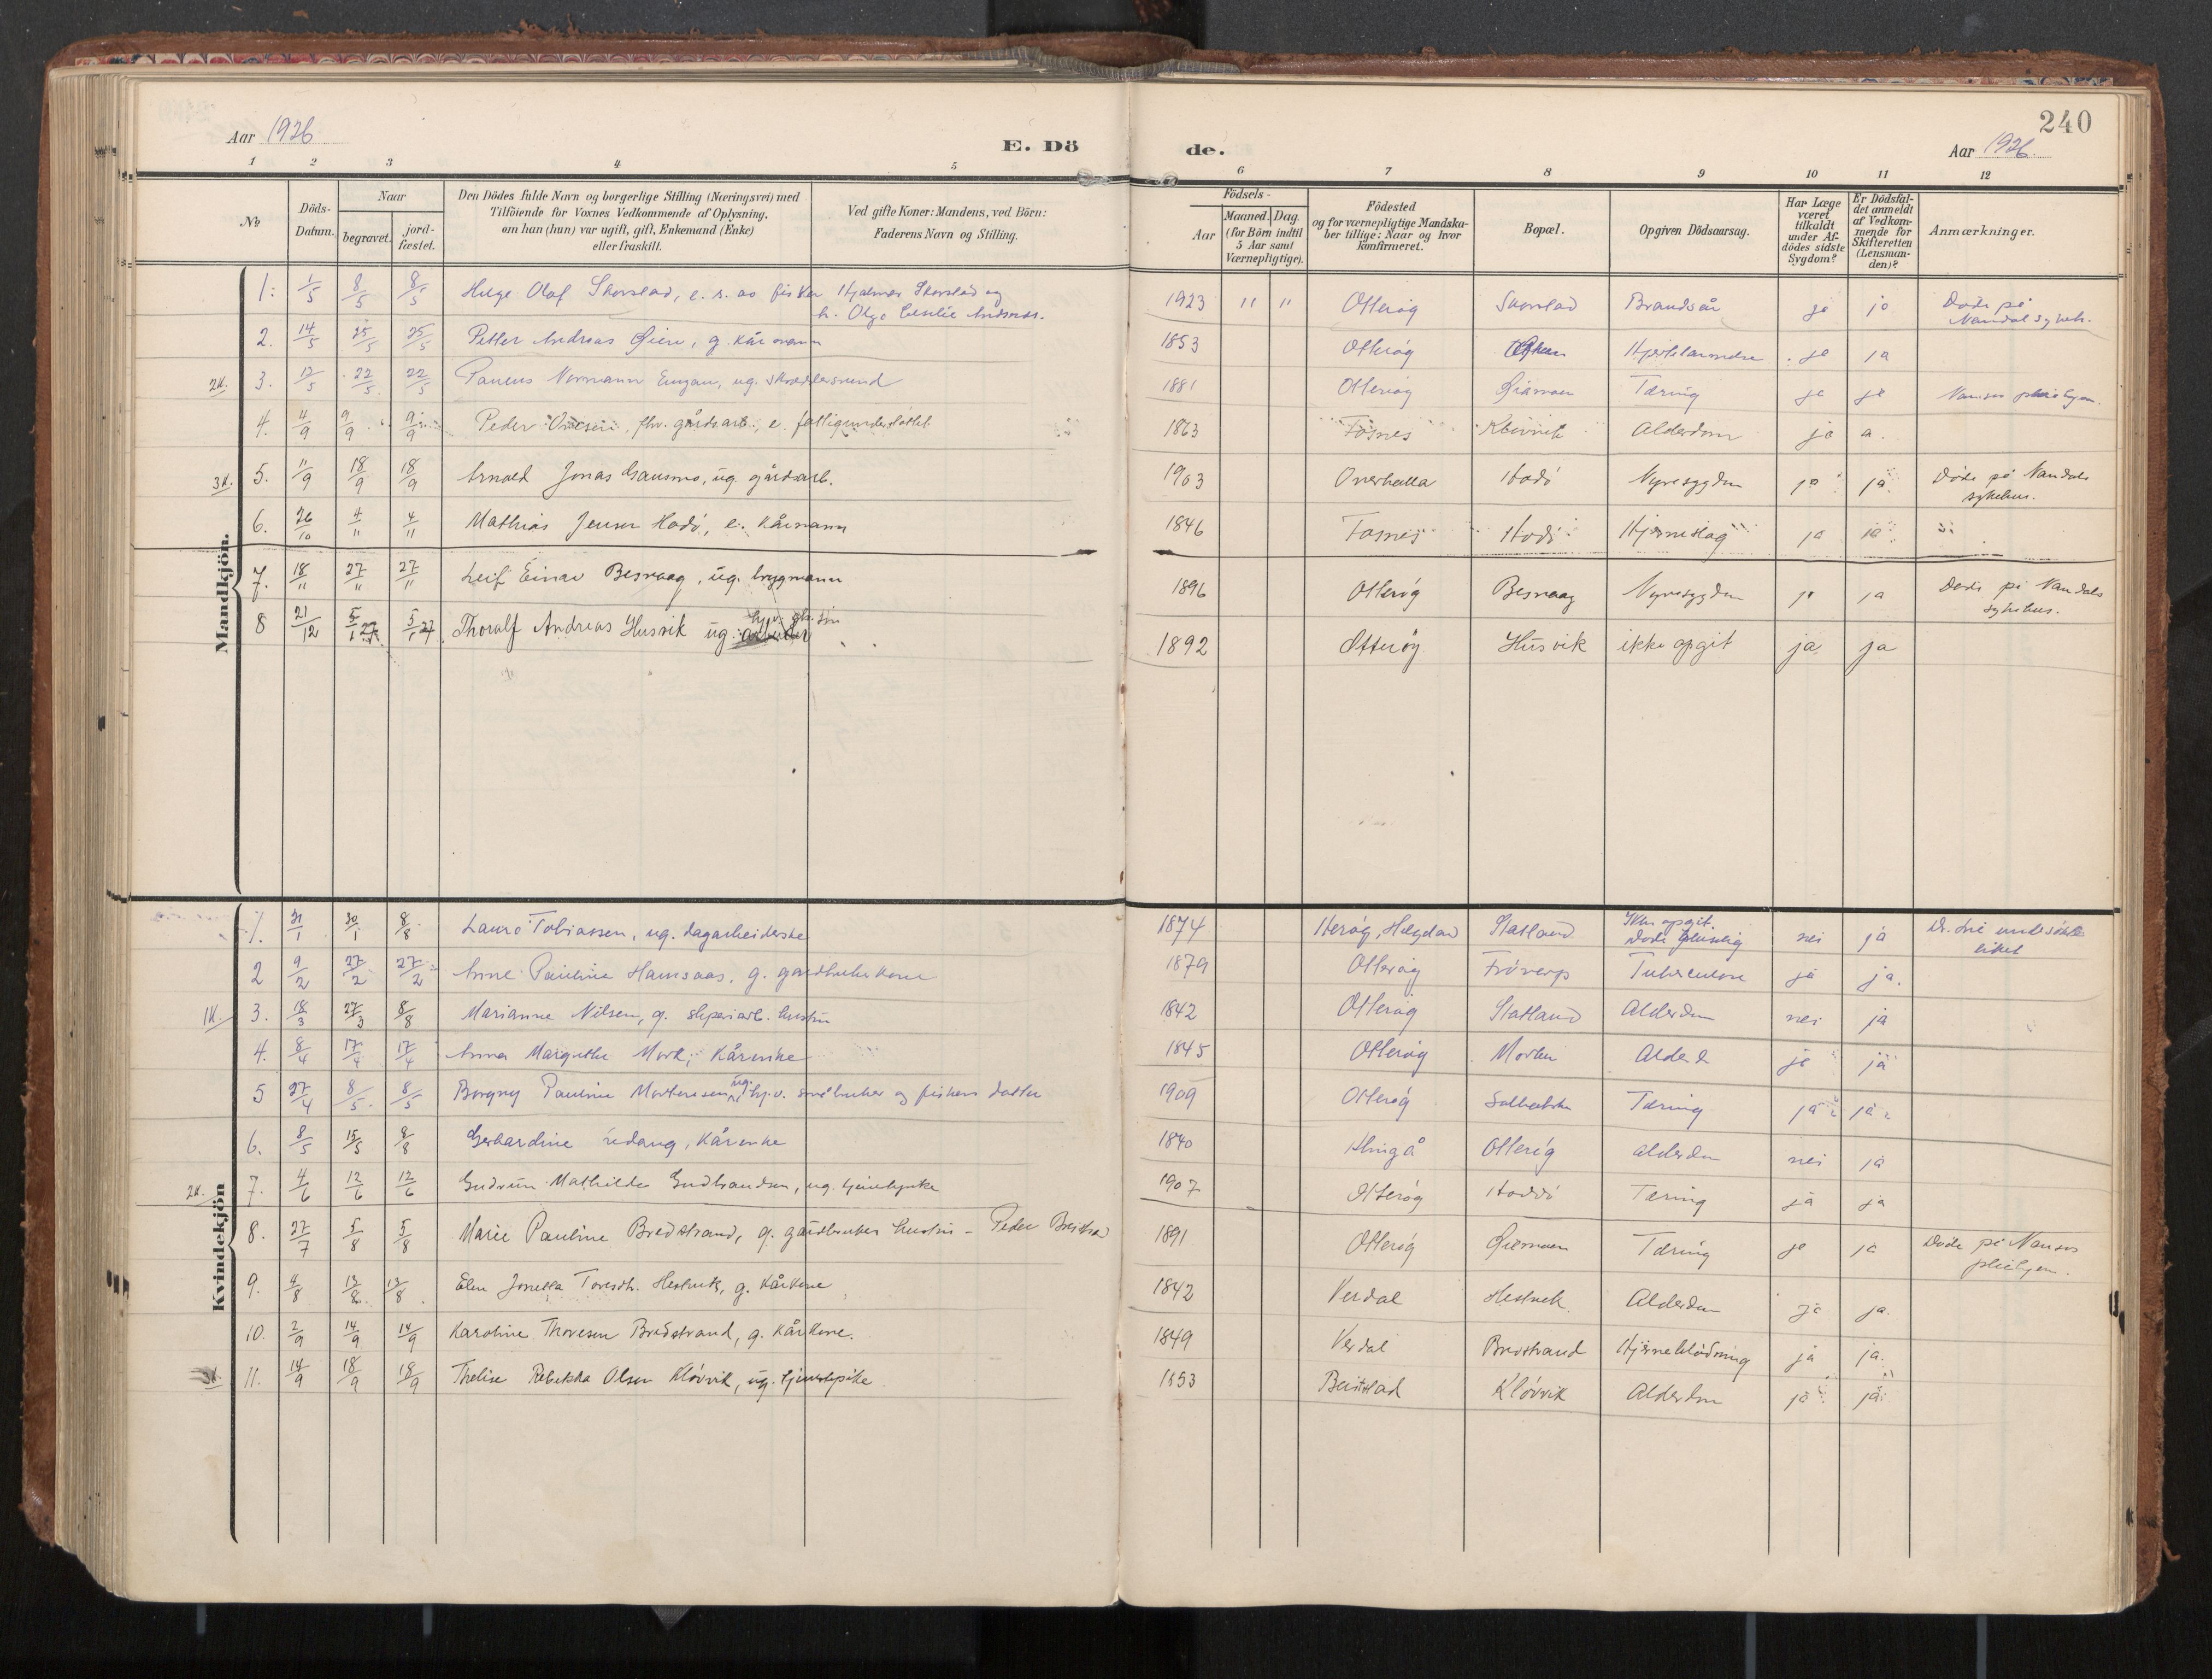 240
Aar 1926
E. Dö
de.
Aar 1926.
1 2 3 4 5 6 7 8 9 10 11 12
№
Döds-
Datum.
Naar
begravet.
jord-
fæstet.
Den Dödes fulde Navn og borgerlige Stilling (Næringsvei) med
Tilföiende for Voxnes Vedkommende af Oplysning,
om han (hun) var ugift, gift, Enkemand (Enke)
eller fraskilt.
Ved gifte Koner: Mandens, ved Börn:
Faderens Navn og Stilling.
Födsels-
Aar
Maaned. Dag.
(for Börn indtil
5 Aar samt
Værnepligtige).
Födested
og for værnepligtige Mandska-
ber tillige: Naar og hvor
konfirmeret.
Bopæl.
Opgiven Dödsaarsag.
Har Læge
været
tilkaldt
under Af-
dödes sidste
Sygdom?
Er Dödsfal-
det anmeldt
af Vedkom-
mende for
Skifteretten
(Lensman-
den)?
Anmærkninger.
Mandkjön.
1. 1/5 8/5 8/5 Helge Olaf Skorstad, e. s. av fisker Hjalmar Skorstad og
h. Olga Cecilie Andersdr. 1923 " " Otterøy Skorstad Brandsår ja ja Døde på
Namdal sykeh.
2. 14/5 25/5 25/5 Petter Andreas Øien, g. kårmann 1853 Otterøy ja ja
2K. 3. 12/5 22/5 22/5 Normann ug. 1881 Otterøy Tæring ja ja Namsos pleiehjem.
4. 4/9 9/9 9/9 Peder fhv. gårdsarb., e. fattigunderstøttet 1863 Fosnes Kløvvik Alderdom ja
3K. 5. 11/9 18/9 18/9 Arnold Jonas Gausmo, ug. gårdsarb. 1903 Overhalla Hodø Nyresygdom ja ja Døde på Namdals
sykehus.
6. 26/10 4/11 4/11 Mathias Jensen Hodø, e. kårmann 1846 Fosnes Hodø Hjerneslag ja ja
7. 18/11 27/11 27/11 Leif Einar Besvaag, ug. 1896 Otterøy Besvaag Nyresygdom ja ja Døde på Namdals
sykehus.
8 21/12 5/1 27 5/1 27 Thoralf Andreas Husvik ug. 1892 Otterøy Husvik ikke opgit ja ja
Kvindekjön
1. 31/1 30/1 8/8 Laura Tobiassen, ug. dagarbeiderske 1874 Herøy, Helgeland Statland Ikke opgit.
Døde pluselig nei ja Dr. Lie undersøkte
liket
2 9/2 27/2 27/2 Anne Pauline Hamsaas, g. gaardbrukerkone 1879 Otterøy Tuberculose ja ja.
1K. 3. 18/3 27/3 8/8 Marianne Nilsen, g. sliperiarb. hustru 1842 Otterøy Statland Alderdom nei ja
4. 8/4 17/4 17/4 Anna Margrethe Mork, kårenke 1845 Otterøy Alderd ja ja
5 27/4 8/5 8/5 Borgny Pauline Mortensen, ug. hj.v. småbruker og fiskers datter 1909 Otterøy Tæring ja ja
6. 8/5 15/5 8/8 Gerhardine kårenke 1840 Klingå Otterøy alderdom nei ja
2K. 7. 4/6 12/6 12/6 Gudrun Mathilde Gudbrandsen, ug. 1907 Otterøy Hoddø Tæring ja ja
8. 27/7 5/8 5/8 Marie Pauline Bredstrand, g. gårdbrukers hustru - Peder Bredstrand 1891 Otterøy Tæring ja ja Døde på Namsos
pleiehjem.
9. 4/8 12/8 12/8 Elen Jonetta Toresdtr. Hestvik, g. kårkone 1842 Verdal Hestvik Alderdom ja ja.
10. 2/9 14/9 14/9 Karoline Thoresen Bredstrand, g. kårkone. 1849 Verdal Bredstrand Hjerneblødning ja ja.
3K. 11. 14/9 18/9 18/9 Thelise Rebekka Olsen Kløvvik, ug. tjenestepike 1853 Beitstad Kløvvik Alderdom ja ja